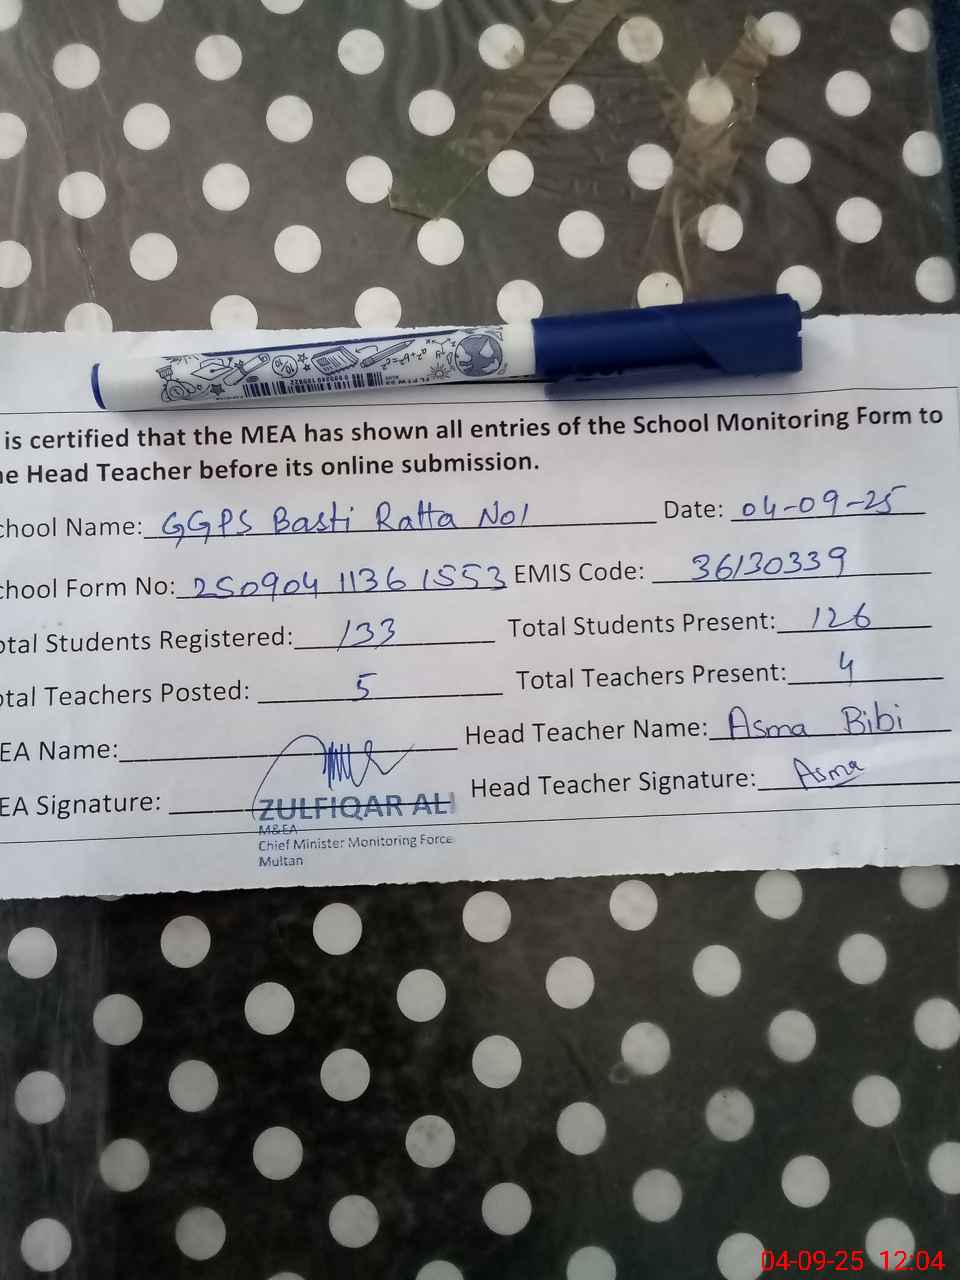 is certified that the MEA has shown all entries of the School Monitoring Form to
he Head Teacher before its online submission.
chool Name: GGPS Basti Ratta No1 Date: 04-09-25
chool Form No: 250904 1136 1553 EMIS Code: 36130339
otal Students Registered: 133 Total Students Present: 126
otal Teachers Posted: 5 Total Teachers Present: 4
EA Name: Head Teacher Name: Asma Bibi
EA Signature: Head Teacher Signature: Asma
ZULFIQAR ALI
M&EA
Chief Minister Monitoring Force
Multan
04-09-25 12:04